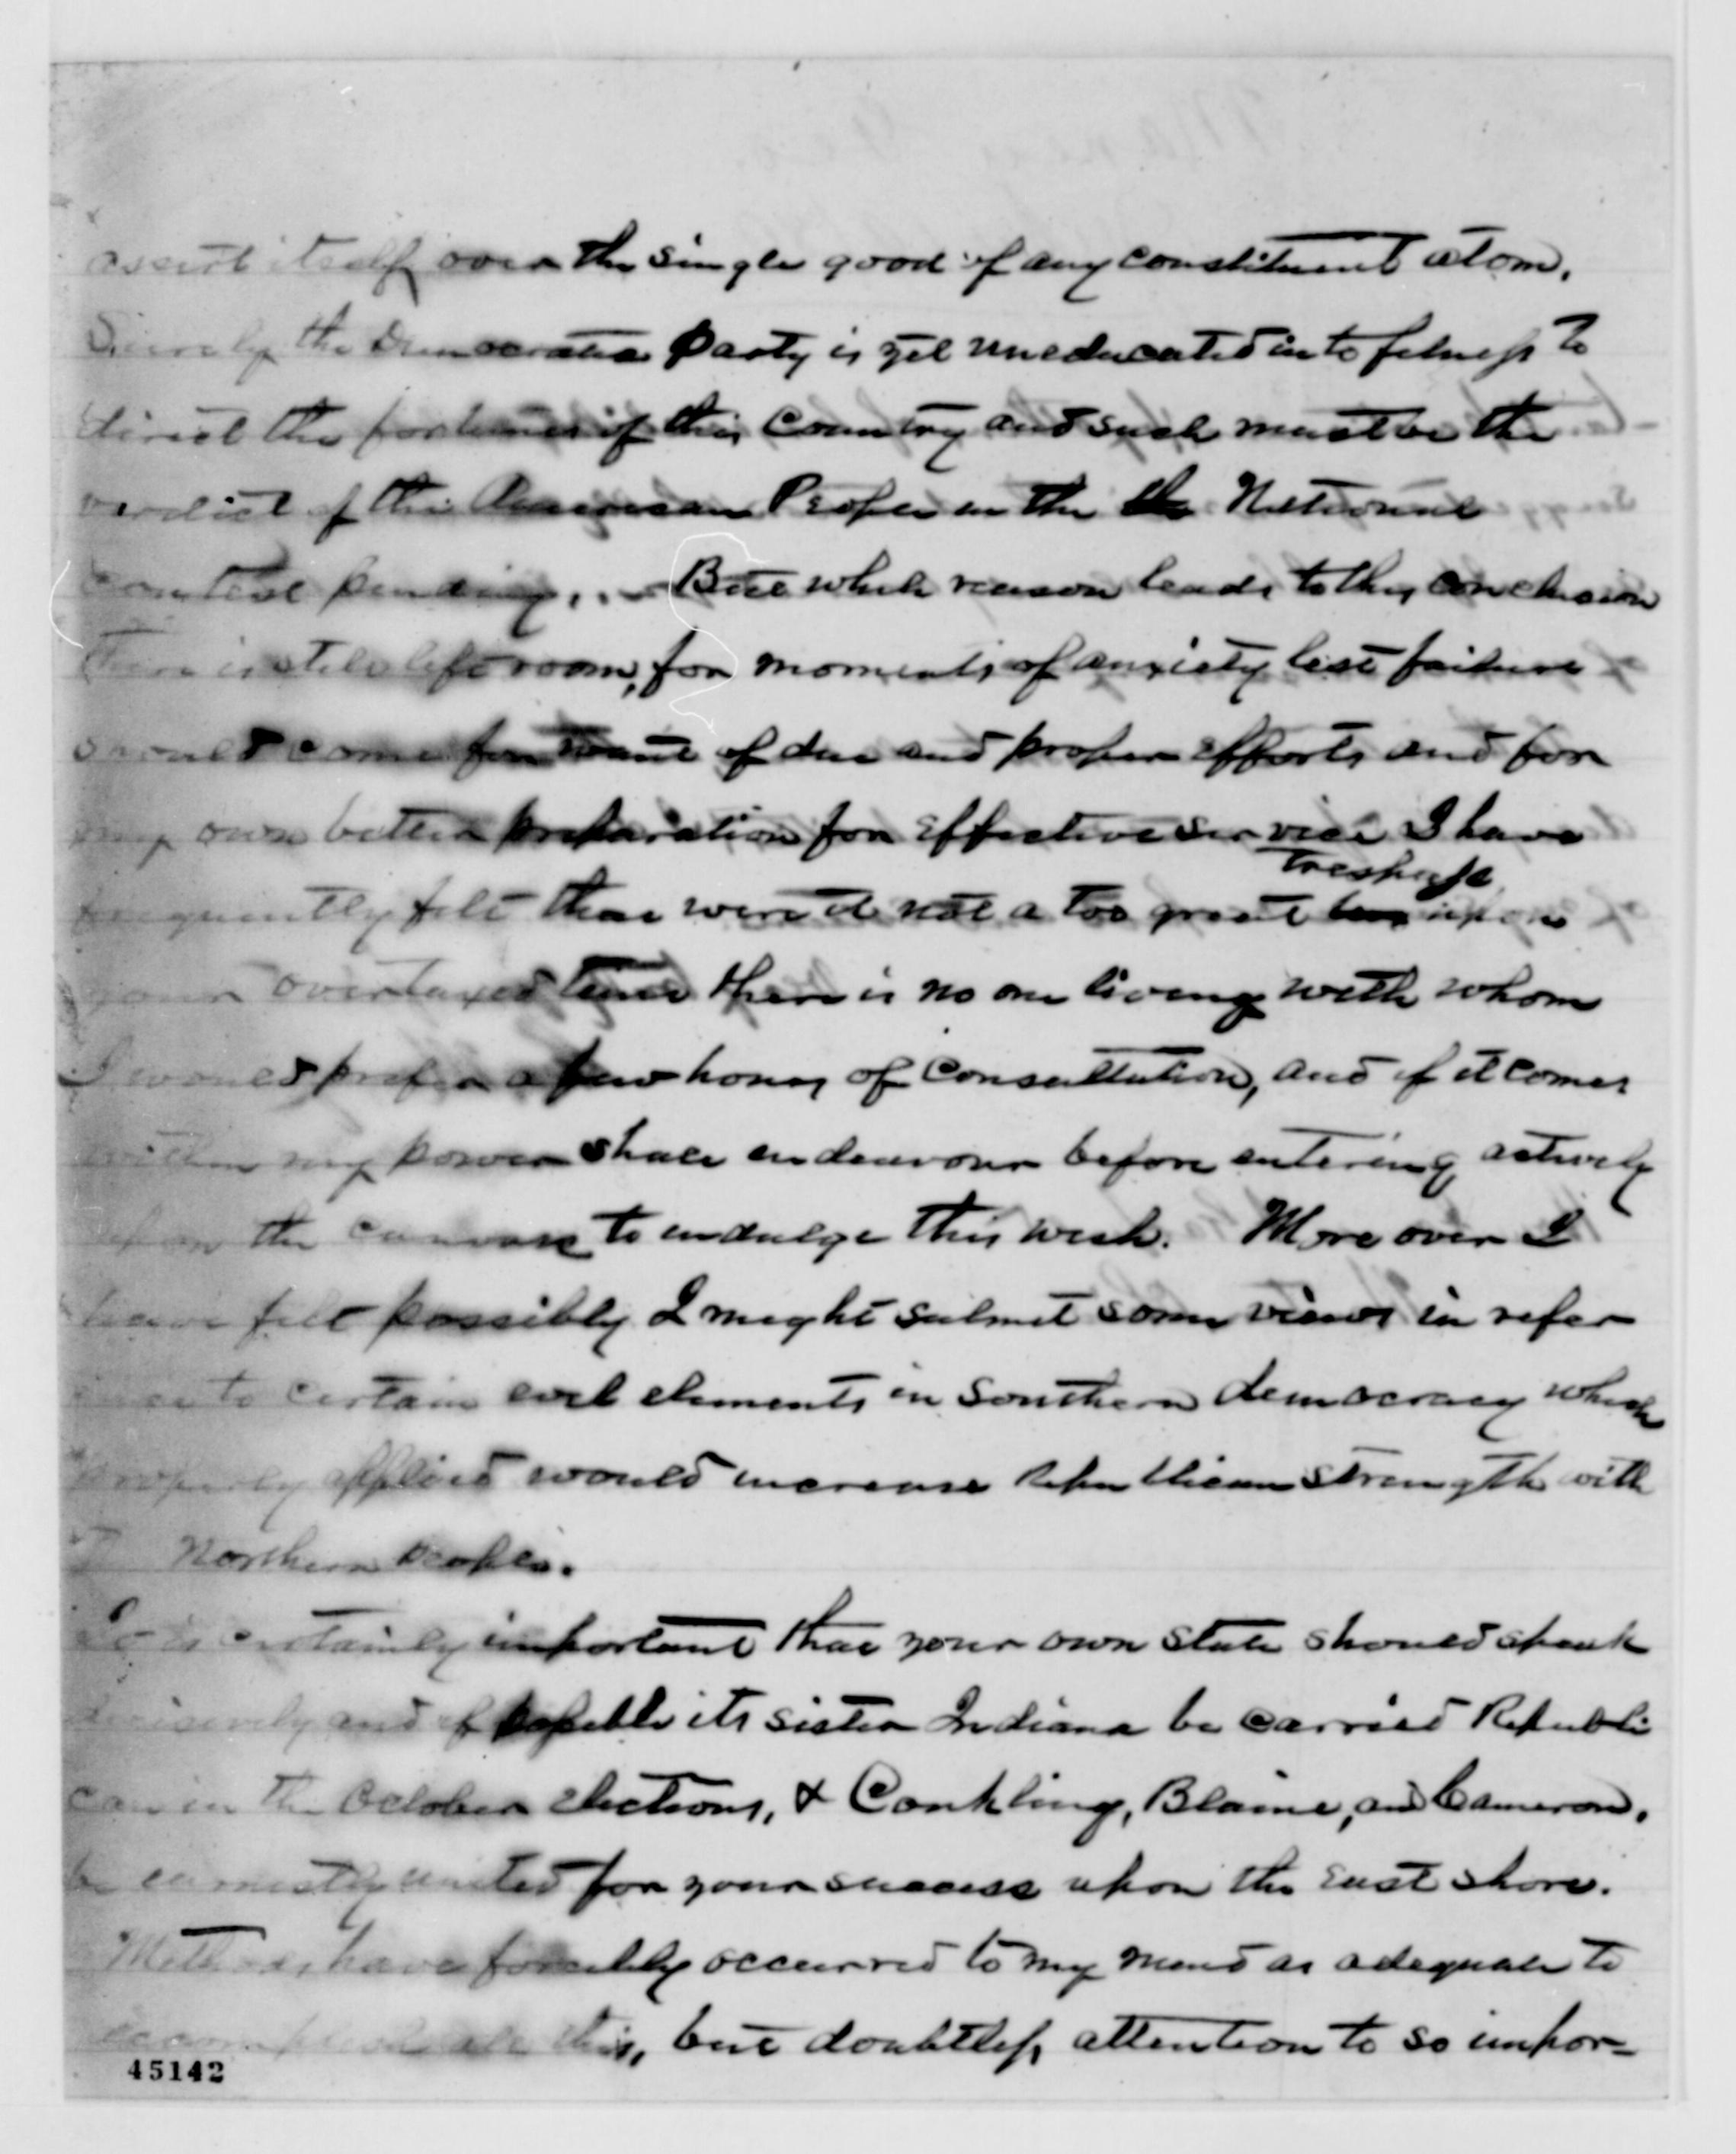 assert itself over the single good of any constituent atom.
Surely the Democratic Party is yet uneducated into fitness to
direct the fortunes of this Country and such must be the
verdict of the American People in the the National
contest pending. But while reason leads to this conclusion
there is still left room, for moments of anxiety lest failure
should come for want of due and proper efforts and for
my own better preparation for effective service I have
trespass
frequently felt that were it not a too great upon
your overtaxed time there is no one living with whom
I would prefer a few hours of consultation, and if it comes
within my power shall endeavour before entering actively
upon the canvass to indulge this wish. Moreover I
have felt possibly I might submit some views in refer
ence to certain evil elements in Southern democracy which
properly applied would increase Republican strength with
Northern people.
It is certainly important that your own state should speak
decisively and if possible its sister Indiana be carried Republi
can in the October elections, & Conkling, Blaine, and Cameron,
be earnestly united for your success upon the east shore.
Methods have forcibly occurred to my mind as adequate to
accomplish all this, but doubtless attention to so impor-
45142